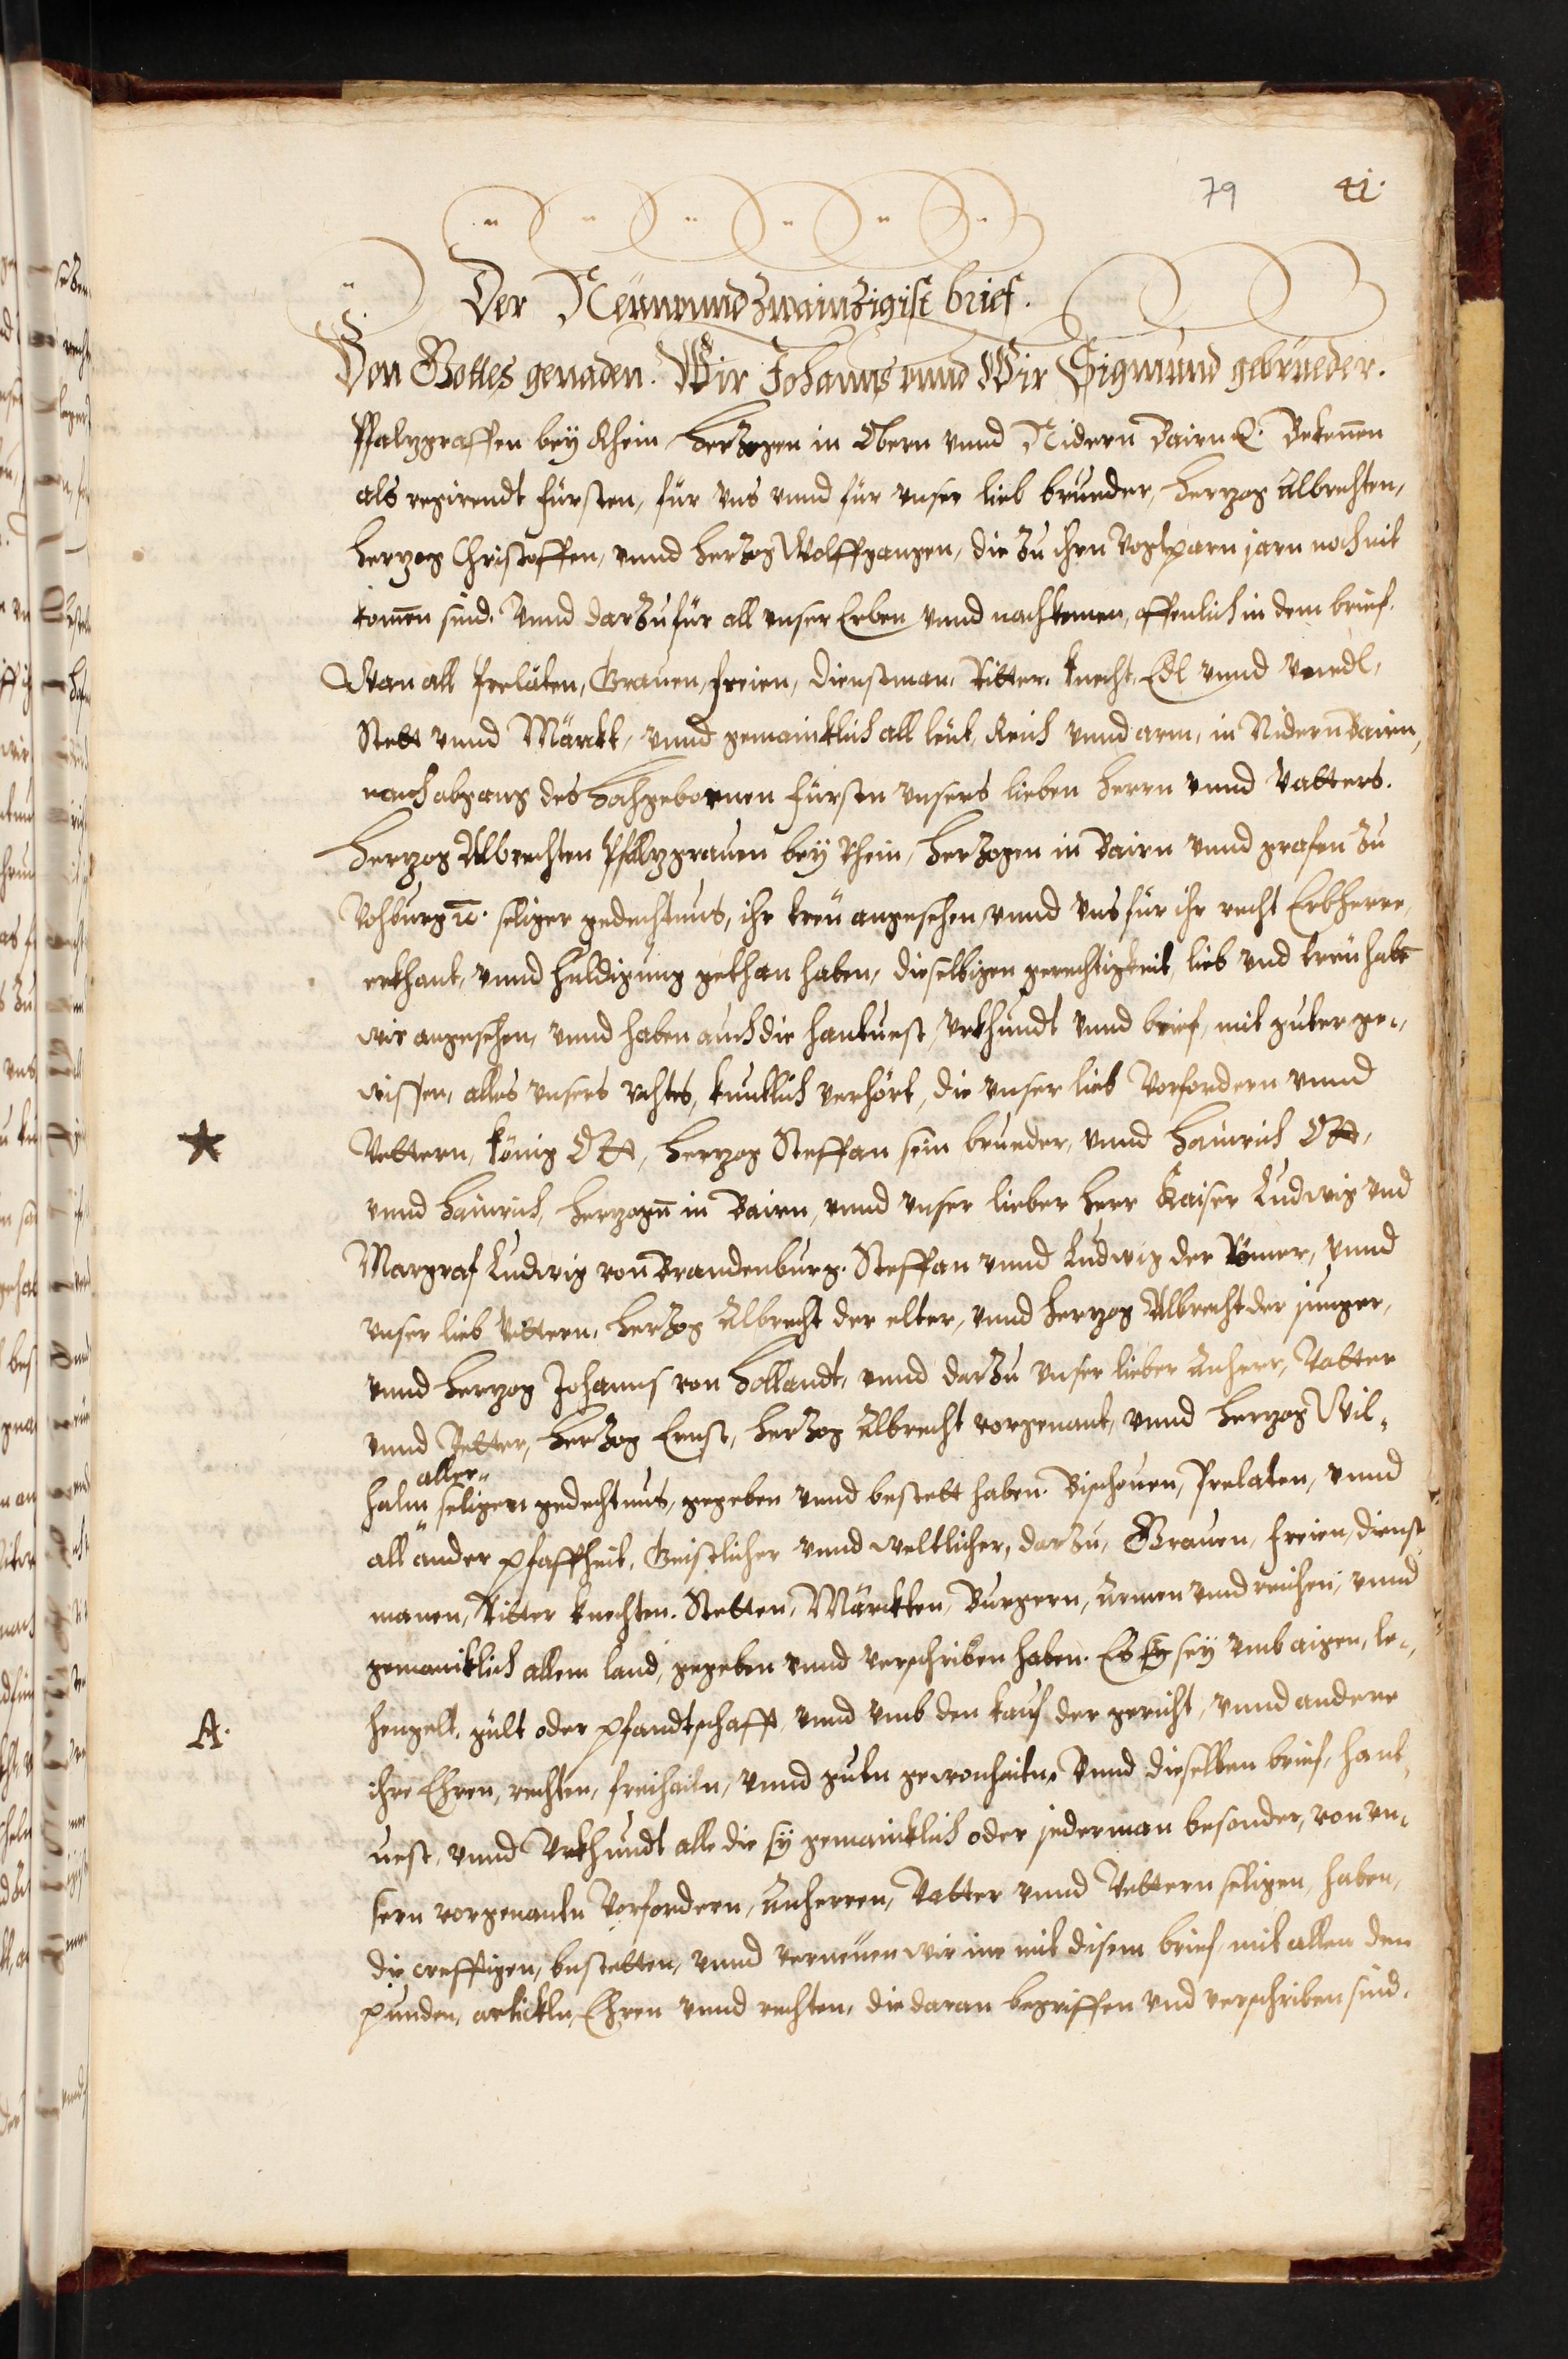 79 41.
Der Neünundzwainzigist brief.
Von Gottes genaden. Wir Johanns vnnd Wir Sigmund gebrüeder.
Pfalzgraffen bey Rhein Herzogen in Obern vnnd Nidern Bairn &. Bekennen
als regirendt fürsten, für vns vnnd für vnser lieb brueder, Herzog Albrechten,
Herzog Christoffen, vnnd Herzog Wolffgangen, die zu ihrn Vogtparn jarn noch nit
komen sind. Vnnd darzu für all vnser Erben vnnd nachkomen, offenlich in dem brief.
Wan all Preläten, Grauen, freien, dienstman, Ritter, knecht, Edl vnnd vnedl,
Stett vnnd Märckt, vnnd gemaincklich all leüt, Reich vnnd arm, in Nidern Bairn,
nach abgang des Hochgebornen fürstn vnsers lieben Herrn vnnd Vatters.
Herzog Albrechten Pfalzgrauen bey Rhein, Herzogen in Bairn vnnd grafen zu
Vohburg ꝛc. seliger gedechtnus, ihr treü angesehen vnnd vns für ihr recht Erbherrn,
erkhant, vnnd huldigung gethan haben, dieselbigen gerechtigkeit, lieb vnd treü habē
wir angesehen, vnnd haben auch die hantuest, Vrkhundt vnnd brief, mit guter ge-
wissen, alles vnsers rahts, kuntlich verhört, die vnser lieb Vorfordern vnnd
Vettern, König Ott, Herzog Steffan sein brueder, vnnd Hainrich Ott,
vnnd Hainrich, Herzogn̄ in Bairn, vnnd vnser lieber Herr Kaiser Ludwig vnd
Margraf Ludwig von Brandenburg. Steffan vnnd Ludwig der Römer, vnnd
vnser lieb Vettern, Herzog Albrecht der elter, vnnd Herzog Albrecht der junger,
vnnd Herzog Johanns von Hollandt, vnnd darzu vnser lieber Anherr, Vatter
vnnd Vetter, Herzog Ernst, Herzog Albrecht vorgenant, vnnd Herzog Wil-
aller
halm seligen gedechtnus, gegeben vnnd bestett haben. Bischouen, Prelaten, vnnd
all ander pfaffheit, Geistlicher vnnd weltlicher, darzu, Grauen, freien, dienst
manen, Ritter knechten. Stetten, Märckten, Burgern, Armen vnd reichen, vnnd
gemaincklich allem land, gegeben vnnd verschriben haben. Es sey vmb aigen, le-
hengelt, gült oder pfandtschafft, vnnd vmb den kauf der gericht, vnnd andere
A.
ihre Ehren, rechten, freihaitn, vnnd gutn gewonhaitn, Vnnd dieselben brief, hant
uest, vnnd Vrkhundt alle die sy gemaincklich oder jederman besonder, von vn-
sern vorgenantn Vorfordern, Anherren, Vatter vnnd Vettern seligen, haben,
die creffigen, bestetten, vnnd verneüen wir ine mit disem brief mit allen den
punden, artickln, Ehren vnnd rechten, die daran begriffen vnd verschriben sind.